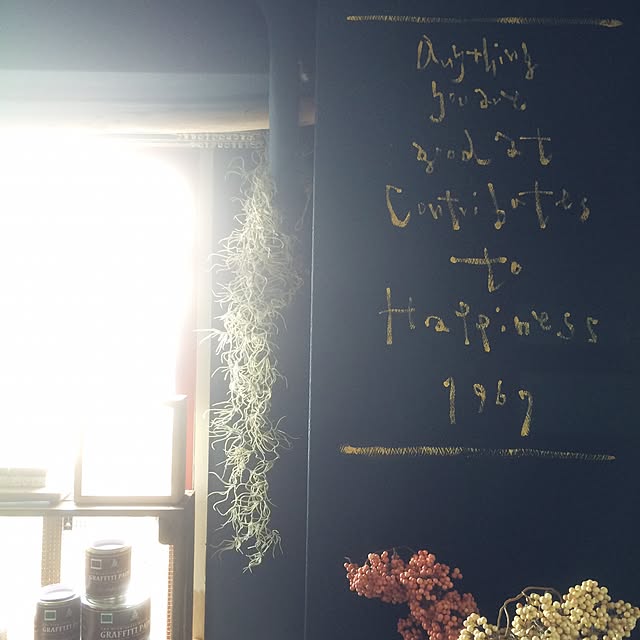 Anything
you are
good at
Contributes
to
Happiness
1967
GRAFFITI PAINT
GRAFFITI
GRAFFITI PA